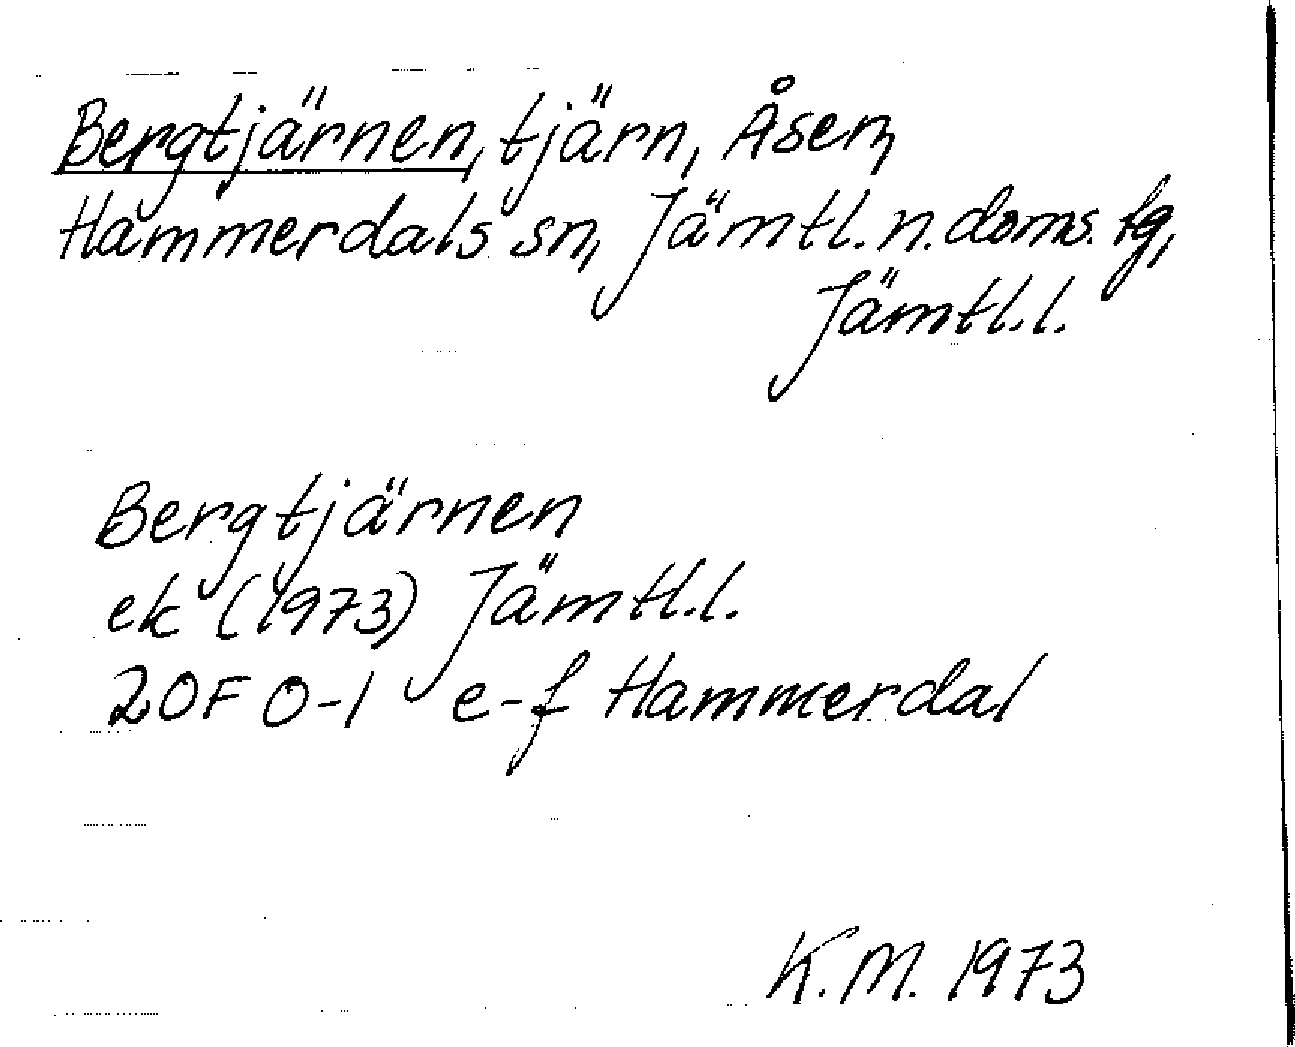 Bergtjärnen, tjärn, Åsen,
Hammerdals sn, Jämtl. n. doms. fg,
Jämtl. l.
Bergtjärnen
ek (1973) Jämtl. l.
20F 0-1 e-f Hammerdal
K.M. 1973